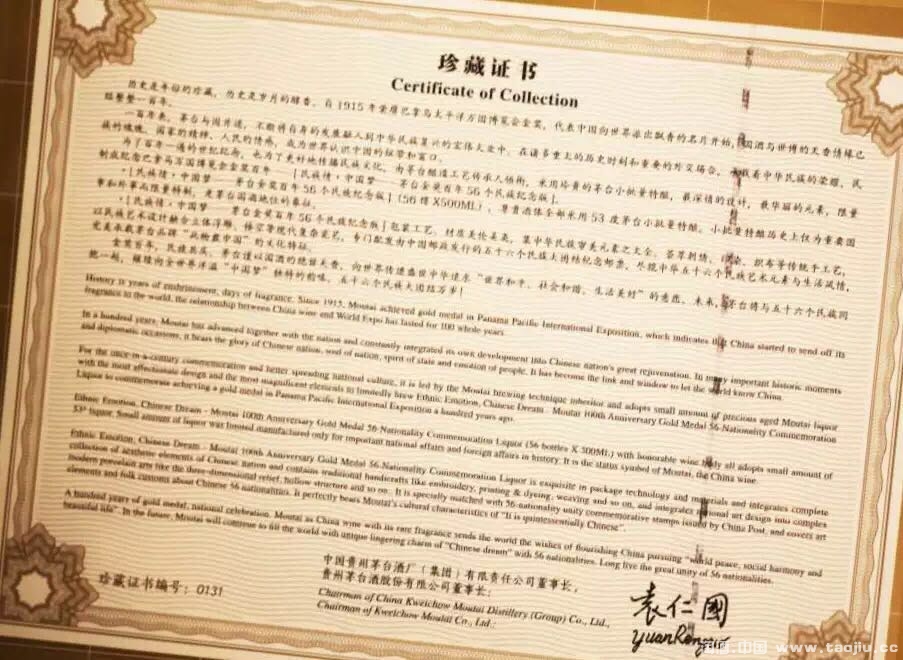 珍藏证书
Certificate of Collection
历史是年份的珍藏，历史是岁月的醇香。自1915年荣膺巴拿马太平洋万国博览会金奖，代表中国向世界派出飘香的名片开始，国酒与世博的天香情缘已
经整整一百年。
一百年来，茅台与国并进，不断将自身的发展融入到中华民族复兴的宏伟大业中。在诸多重大的历史时刻和重要的外交场合，承载着中华民族的荣耀、民
族的魂魄、国家的精神、人民的情感，成为世界认识中国的纽带和窗口。
为了百年一遇的世纪纪念，也为了更好地传播民族文化，由茅台酿造工艺传承人领衔，采用珍贵的茅台小批量特酿，最深情的设计，最华丽的元素，限量
制成纪念巴拿马万国博览会金奖百年——[民族情·中国梦——茅台金奖百年56个民族纪念版]。
·[民族情·中国梦——茅台金奖百年56个民族纪念版]（56樽X500ML），尊贵酒体全部采用53度茅台小批量特酿。小批量特酿历史上仅为重要国
事和外事而限量特制，是茅台国酒地位的象征。
·[民族情·中国梦——茅台金奖百年56个民族纪念版]包装工艺，材质美伦美奂，集中华民族审美元素之大全。荟萃刺绣、织布等传统手工艺，
以民族艺术设计融合立体浮雕、镂空等现代复杂瓷艺，专门配发由中国邮政发行的五十六个民族大团结纪念邮票，尽揽中华五十六个民族艺术元素与生活风情，
完美承载茅台品牌“此物最中国”的文化特征。
金奖百年，民族共庆。茅台谨以国酒的绝世天香，向世界传递盛世中华追求“世界和平、社会和谐、生活美好”的意愿。未来，茅台将与五十六个民族同
胞一起，继续向全世界洋溢“中国梦”独特的韵味。五十六个民族大团结万岁！
History is years of enshrinement, days of fragrance. Since 1915, Moutai achieved gold medal in Panama Pacific International Exposition, which indicates that China started to send off its
fragrance to the world, the relationship between China wine and World Expo has lasted for 100 whole years.
In a hundred years, Moutai has advanced together with the nation and constantly integrated its own development into Chinese nation's great rejuvenation. In many important historic moments
and diplomatic occasions, it bears the glory of Chinese nation, soul of nation, spirit of state and emotion of people. It has become the link and window to let the world know China.
For the once-in-a-century commemoration and better spreading national culture, it is led by the Moutai brewing technique inheritor and adopts small amount of precious aged Moutai liquor
with the most affectionate design and the most magnificent elements to limitedly brew Ethnic Emotion, Chinese Dream - Moutai 100th Anniversary Gold Medal 56-Nationality Commemoration
Liquor to commemorate achieving a gold medal in Panama Pacific International Exposition a hundred years ago.
Ethnic Emotion, Chinese Dream - Moutai 100th Anniversary Gold Medal 56-Nationality Commemoration Liquor (56 bottles X 500ML) with honorable wine body all adopts small amount of
53° liquor. Small amount of liquor was limited manufactured only for important national affairs and foreign affairs in history. It is the status symbol of Moutai, the China wine.
Ethnic Emotion, Chinese Dream - Moutai 100th Anniversary Gold Medal 56-Nationality Commemoration Liquor is exquisite in package technology and materials and integrates complete
collection of aesthetic elements of Chinese nation and contains traditional handicrafts like embroidery, printing & dyeing, weaving and so on, and integrates national art design into complex
modern porcelain arts like the three-dimensional relief, hollow structure and so on. It is specially matched with 56-nationality unity commemorative stamps issued by China Post, and covers art
elements and folk customs about Chinese 56 nationalities. It perfectly bears Moutai's cultural characteristics of "It is quintessentially Chinese".
A hundred years of gold medal, national celebration. Moutai as China wine with its rare fragrance sends the world the wishes of flourishing China pursuing "world peace, social harmony and
beautiful life". In the future, Moutai will continue to fill the world with unique lingering charm of "Chinese dream" with 56 nationalities. Long live the great unity of 56 nationalities.
珍藏证书编号：0131
中国贵州茅台酒厂（集团）有限责任公司董事长，
贵州茅台酒股份有限公司董事长：
Chairman of China Kweichow Moutai Distillery (Group) Co., Ltd.,
Chairman of Kweichow Moutai Co., Ltd.:
袁仁國
yuanRenguo
www.taojiu.cc